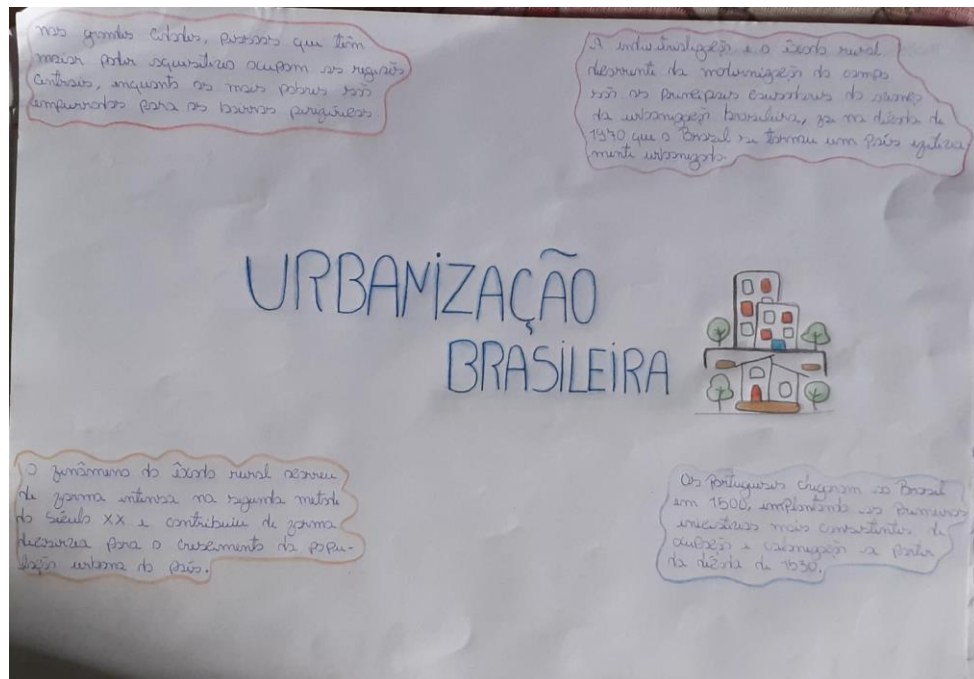 nas grandes cidades, pessoas que têm
maior poder aquisitivo ocupam as regiões
centrais, enquanto os mais pobres são
empurrados para os bairros periféricos.
A industrialização e o êxodo rural
decorrente da modernização do campo
são os principais causadores do
da urbanização brasileira, foi na década de
1970 que o Brasil se tornou um País efetiva
mente urbanizado.
URBANIZAÇÃO
BRASILEIRA
O fenômeno do êxodo rural ocorreu
de forma intensa na segunda metade
do século XX e contribuiu de forma
decisiva para o crescimento da popu-
lação urbana do país.
Os Portugueses chegaram ao Brasil
em 1500, implantando as primeiras
iniciativas mais consistentes de
ocupação e colonização a partir
da década de 1530.